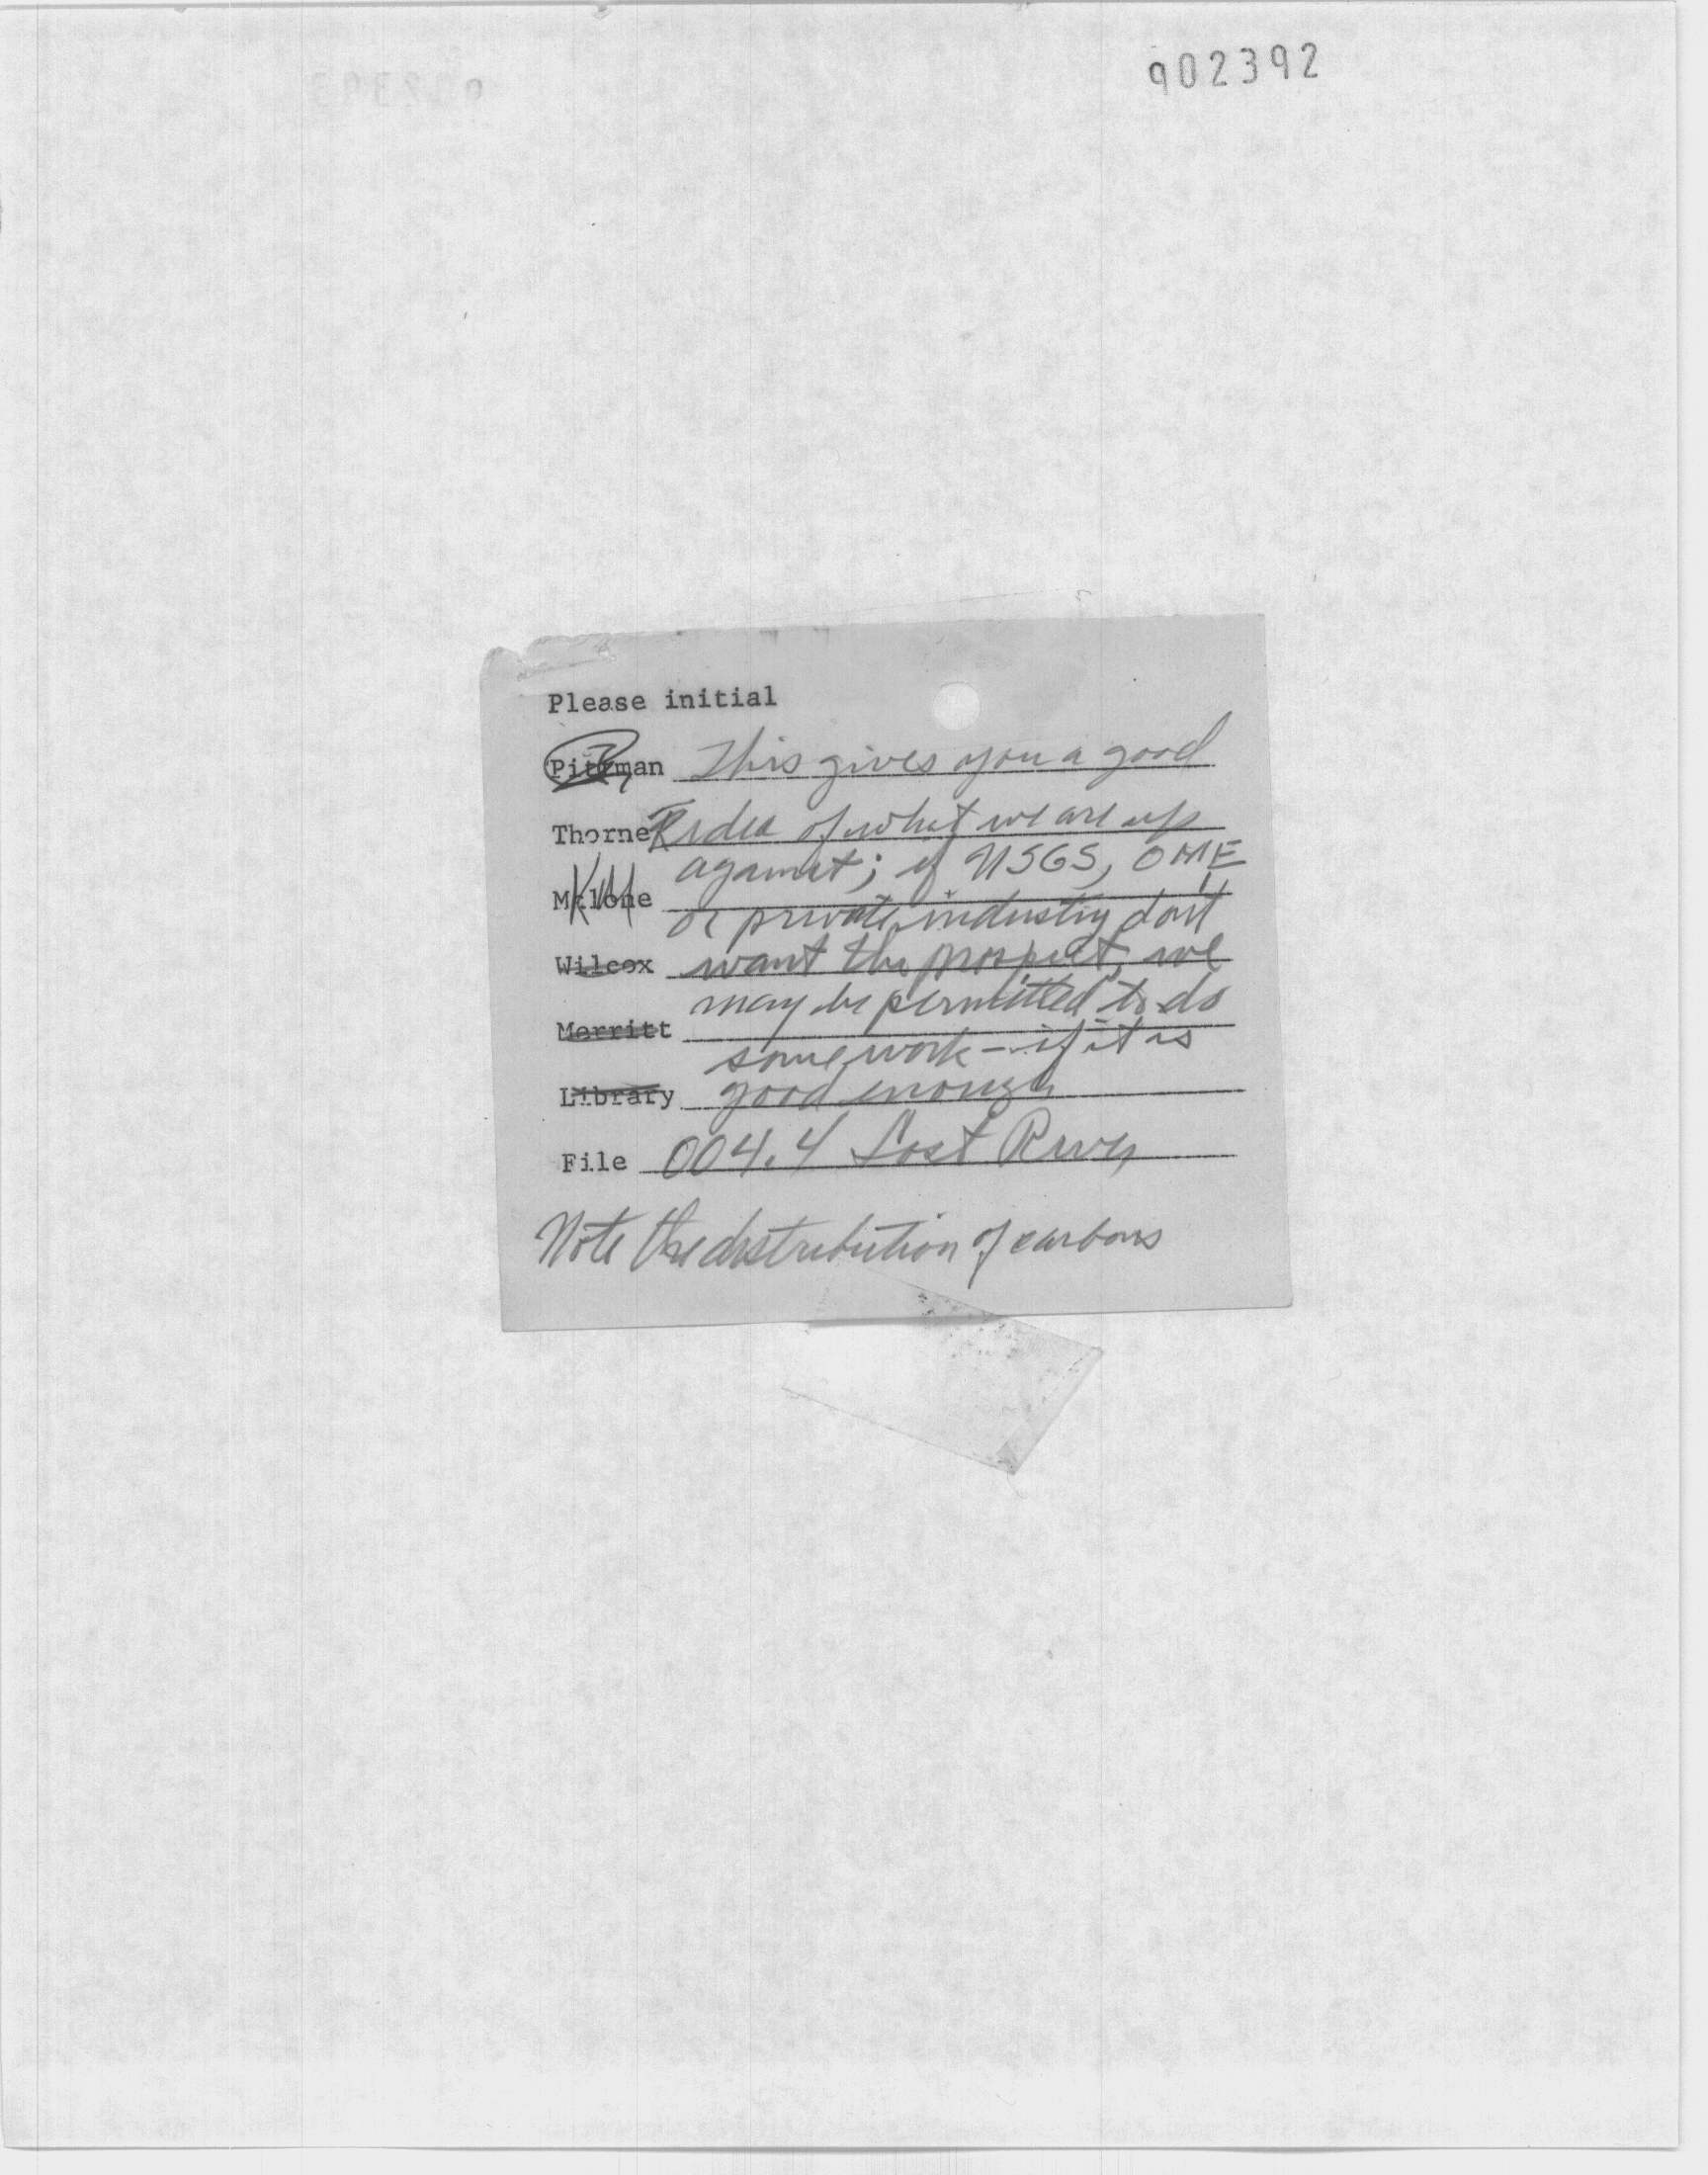 902392
Please initial
Pitzman This gives you a good
Thorne idea of what we are up
against; if USGS, OME
Malone
or private industry don't
Wilcox want the prospect, we
may be permitted to do
Merritt
some work - if it is
Library good enough
File 004.4 Lost River
Note the distribution of carbons